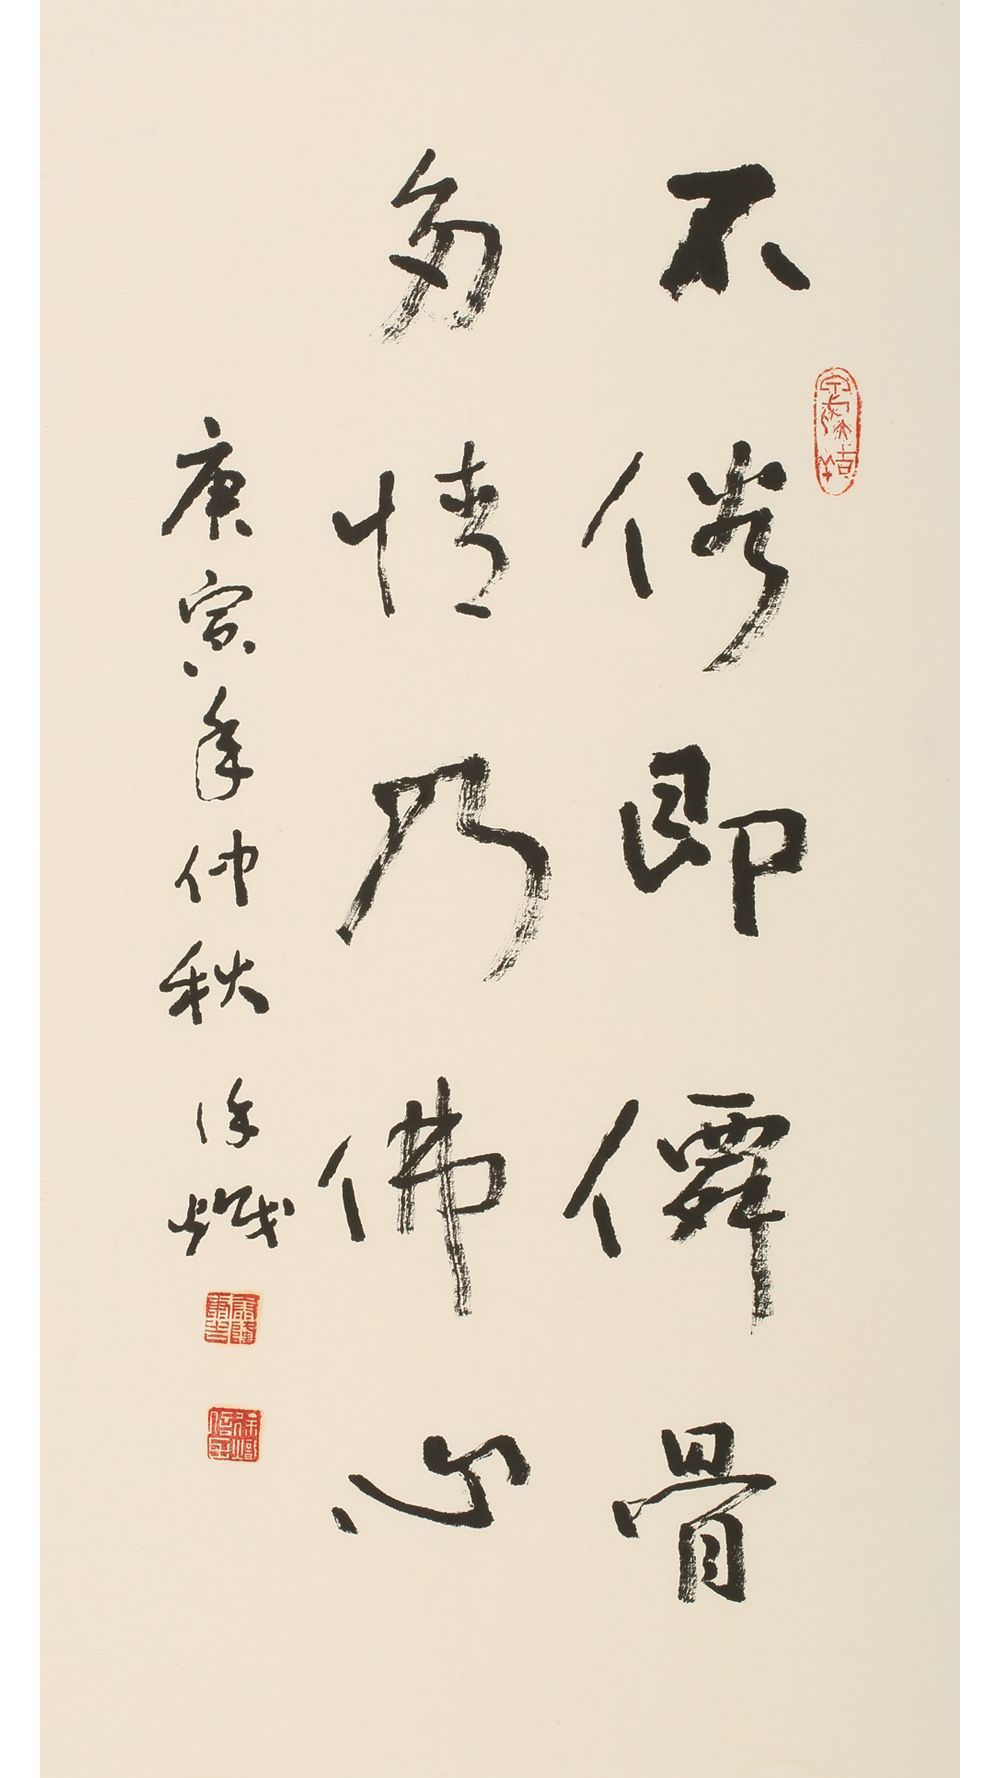 不俗即僊骨
多情乃佛心
庚寅年仲秋 徐熾